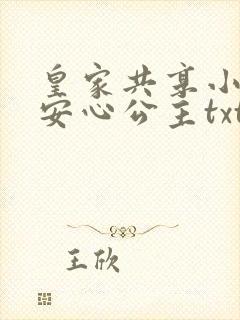 皇家共享小
安心公主txt
王欣